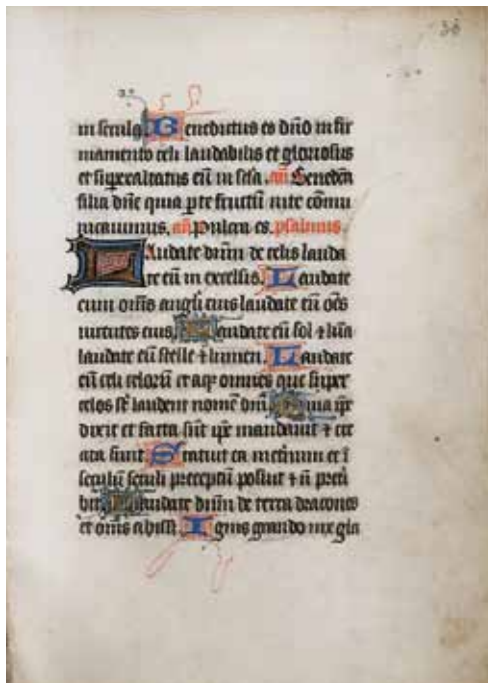 36
in secula Benedictus es dñe in fir
mamento celi laudabilis et gloriosus
et superexaltatus eũ in scła. añ Benedicta
filia dñe quia p te fructũ vite cõmu
nicauimus. añ Pulcra es. psalmus.
Laudate dñm de celis lauda
te eũ in excelsis. Laudate
eum omĩs angli eius laudate eũ oẽs
uirtutes eius. Laudate eũ sol ⁊ lũa
laudate eũ stelle ⁊ lumen. Laudate
eũ celi celorũ et aq̃ omnes que super
celos sũt laudent nomẽ dñi. Quia ip̃e
dixit et facta sũt ip̃e mandauit ⁊ cre
ata sunt Statuit ea in eternum et ĩ
seculũ seculi preceptũ posuit ⁊ nõ preti
bit Laudate dñm de terra dracones
et omĩs abissi. Ignis grando nix gla